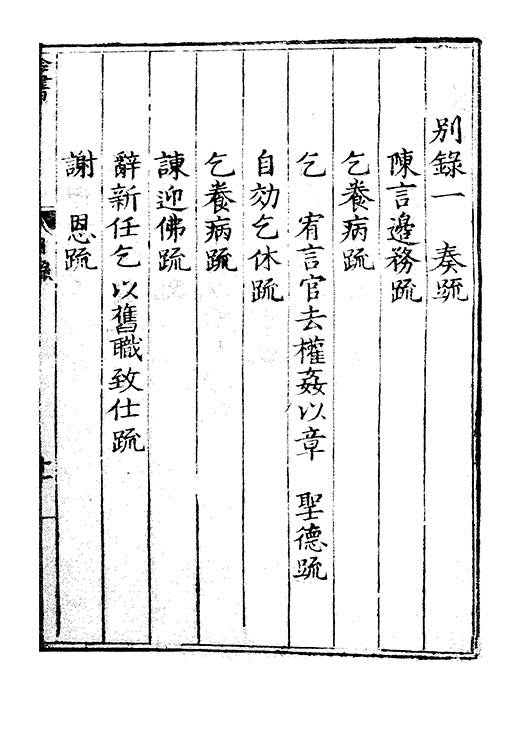 別錄一　奏疏
陳言邊務疏
乞養病疏
乞　宥言官去權姦以章　聖德疏
自劾乞休疏
乞養病疏
諫迎佛疏
辭新任乞以舊職致仕疏
謝　恩疏
全書　目錄　十